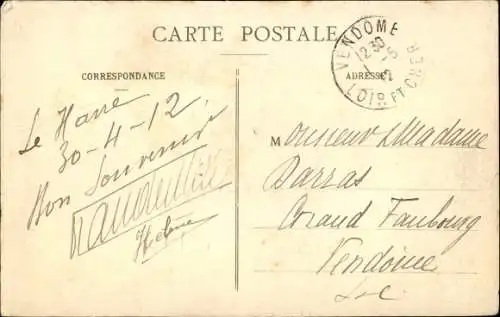 CARTE POSTALE
VENDOME
12 30
1 - 5
12
LOIR ET CHER
CORRESPONDANCE
ADRESSE
Le Havre
30-4-12
Bon Souvenir
Helene
Monsieur & Madame
Darras
Grand Faubourg
Vendôme
L-&-C